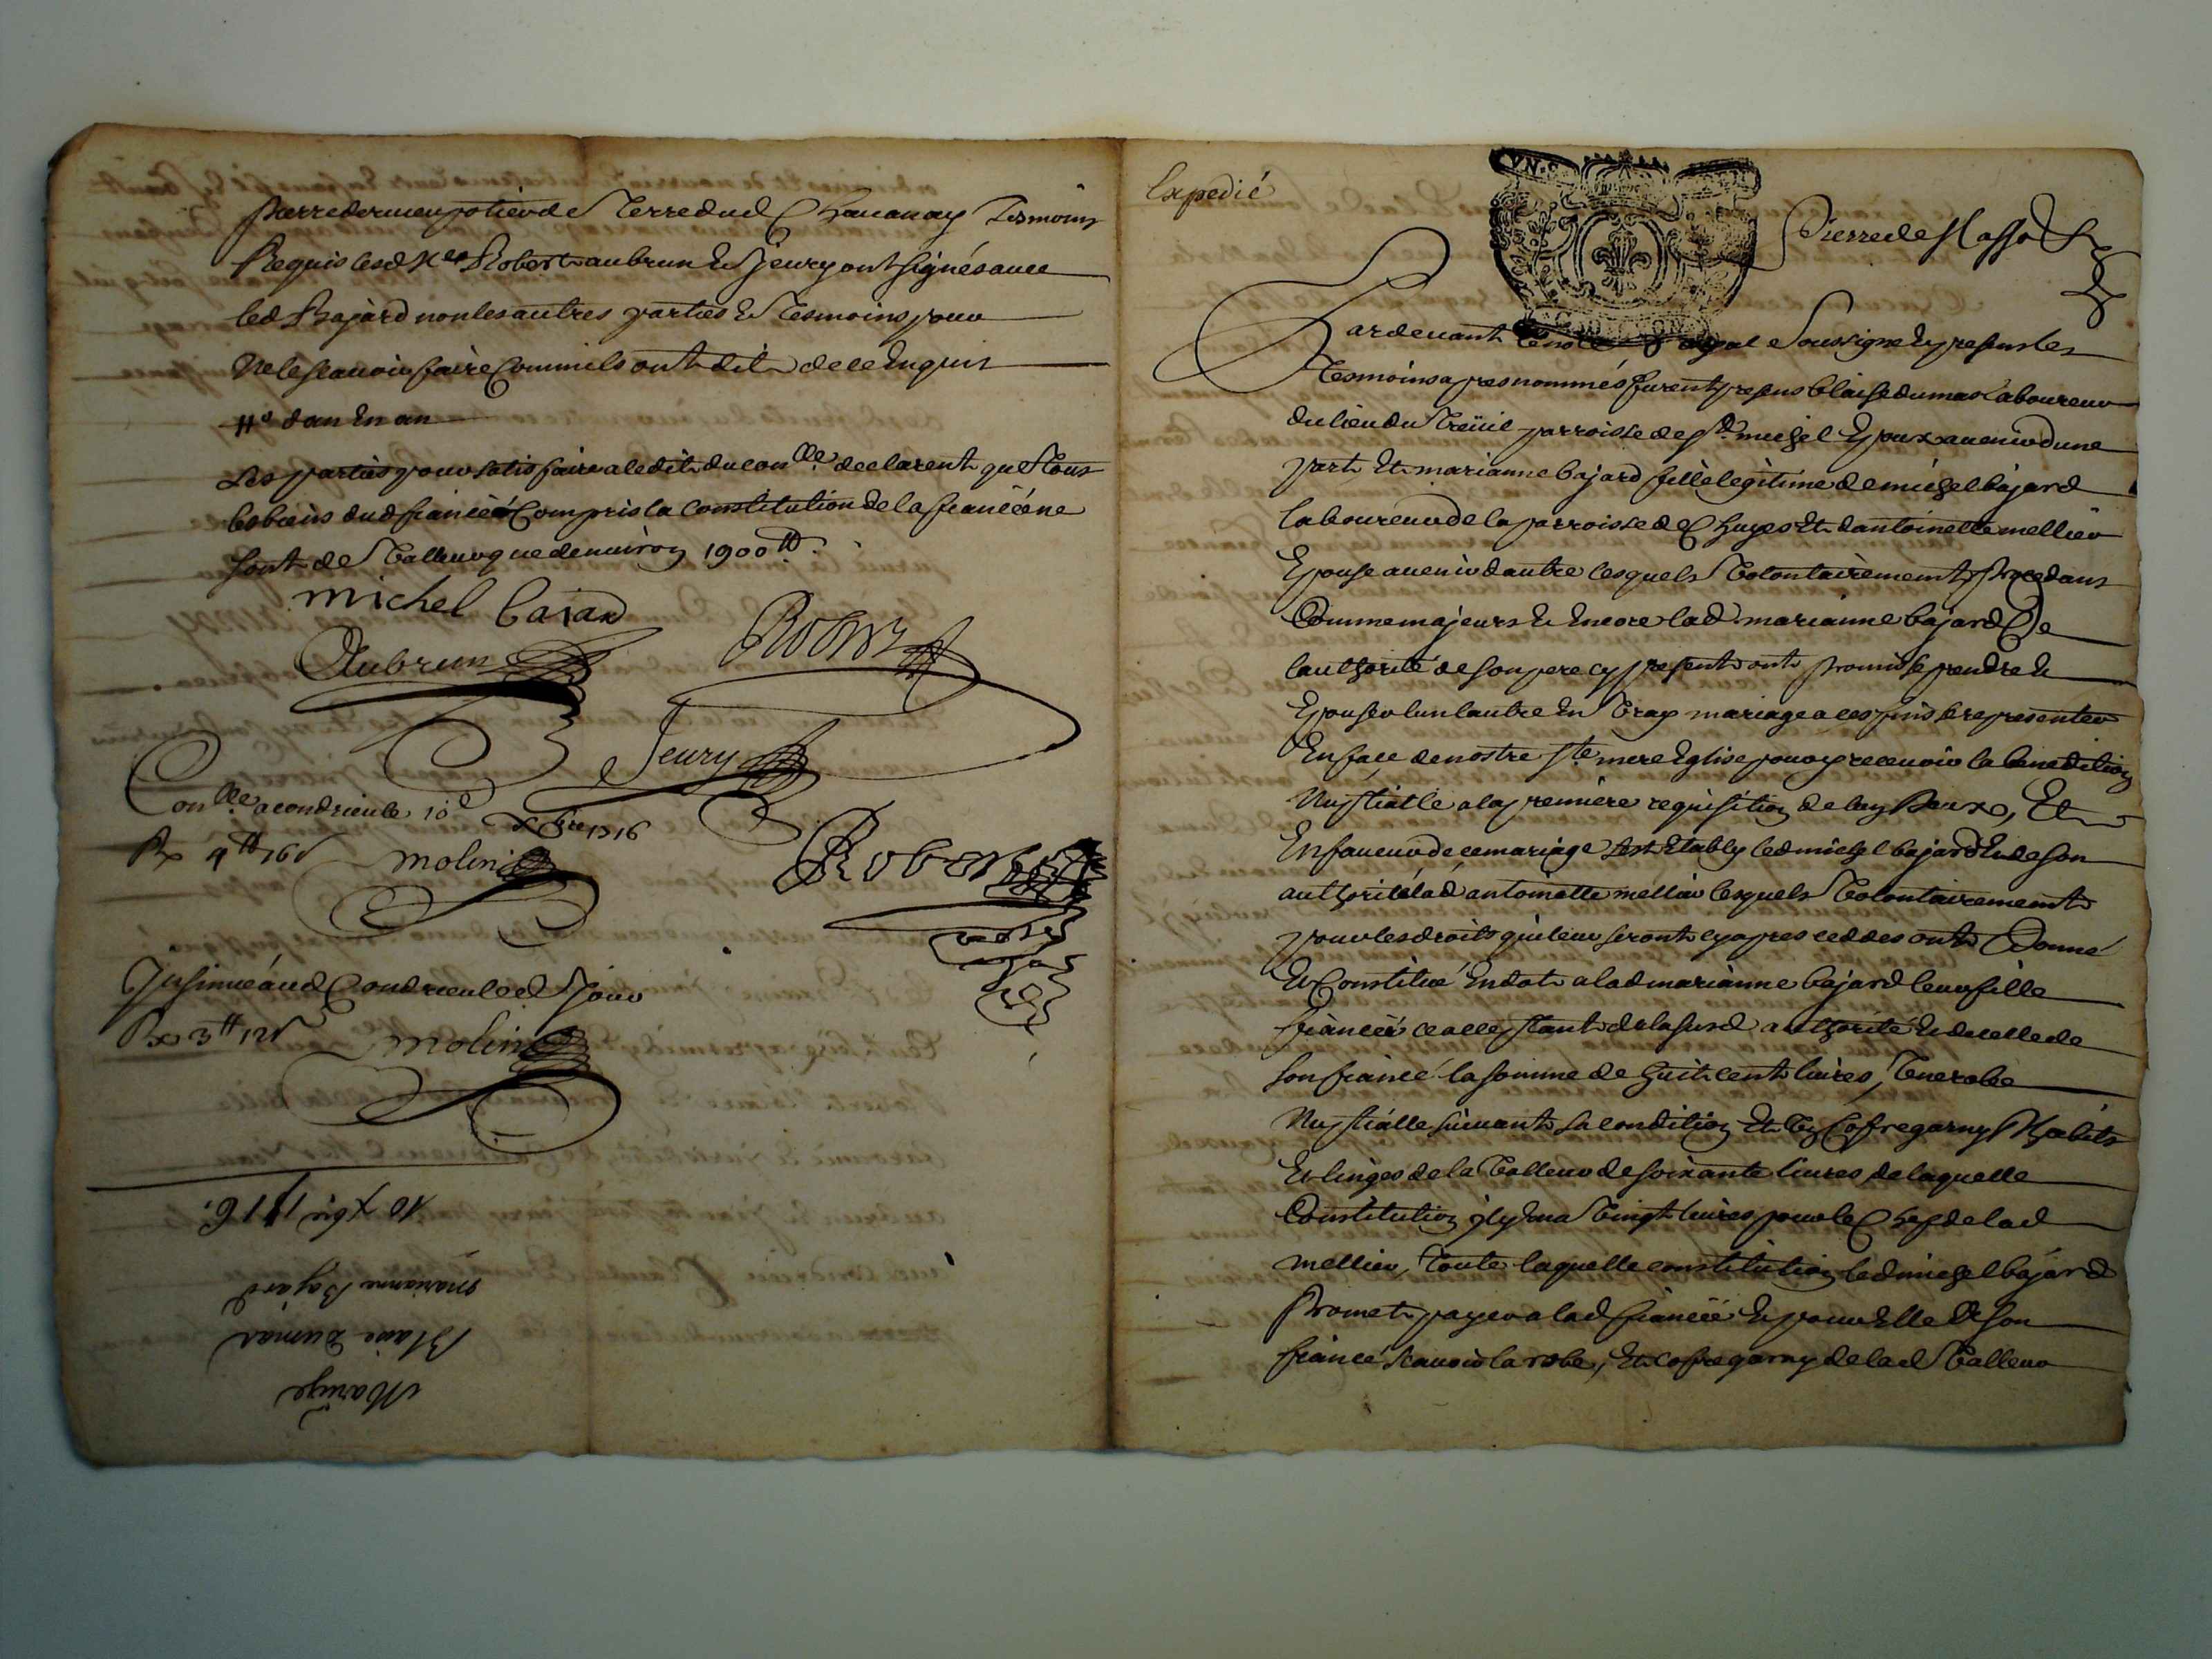 pierre dermeu potier de terre dud Chauanay tesmoins
Requis lesd Mes Robert aubrun & Jeury ont signés auec
led Bajard non les autres parties & tesmoins pour
ne le scauoir faire comm ils ont dit de ce Enquis
dan En an
Les parties pour satisfaire a ledit du conlle declarent que tous
les biens dud fiancé Compris la Constitution de la fiancée ne
sont de Valleur que denuiron 1900 tt
michel baiard
Aubrun
Robert
Jeury
Conlle a condrieu le 10e xbre 1716
Rx 4tt 16s
molin
Robert
Insinué aud Condrieu led Jour
Rx 3tt 12s
molin
10 xbre 1716.
marianne Bajard
Blaise Dumas
Mariage
Expedié
Pierre de
Pardeuant le no Royal Soussigne & presens les
tesmoins apres nommés furent presens blaise dumas laboureur
du lieu du Treüil parroisse de St michel Epoux auenir dune
part, Et marianne bajard fille legitime de michel bajard
laboureur de la parroisse de Chuyes Et dantoinette mellier
Epouse auenir dautre lesquels Volontairement procedans
Comme majeurs & Encore lad marianne bajard De
lauthorité de son pere cy present ont promis se prendre &
Epouser lun lautre En Vray mariage a ces fins se representer
En face de nostre Ste mere Eglise pour y receuoir la benedition
Nuptialle a la premiere requisition de luy Deux, Et
En faueur de ce mariage sest Etably led michel bajard & de son
authorité lad antoinette mellier lesquels Volontairement
pour les droits qui leur seront cy apres ceddes ont Donné
& Constitué En dot a lad marianne bajard leur fille
fiancée ce acceptant de la susd authorité & de celle de
son fiancé la somme de huit cent liures, Vne robe
Nuptialle suiuant sa condition Et Vn Coffre garny Habits
& linges de la Valleur de soixante liures de laquelle
Constitution il y En a Vingt liures pour le Chef de lad
mellier, toute laquelle constitution led michel bajard
Promet payer a lad fiancée & pour Elle A son
fiancé scauoir la robe, Et cofre garny de lad Valleur